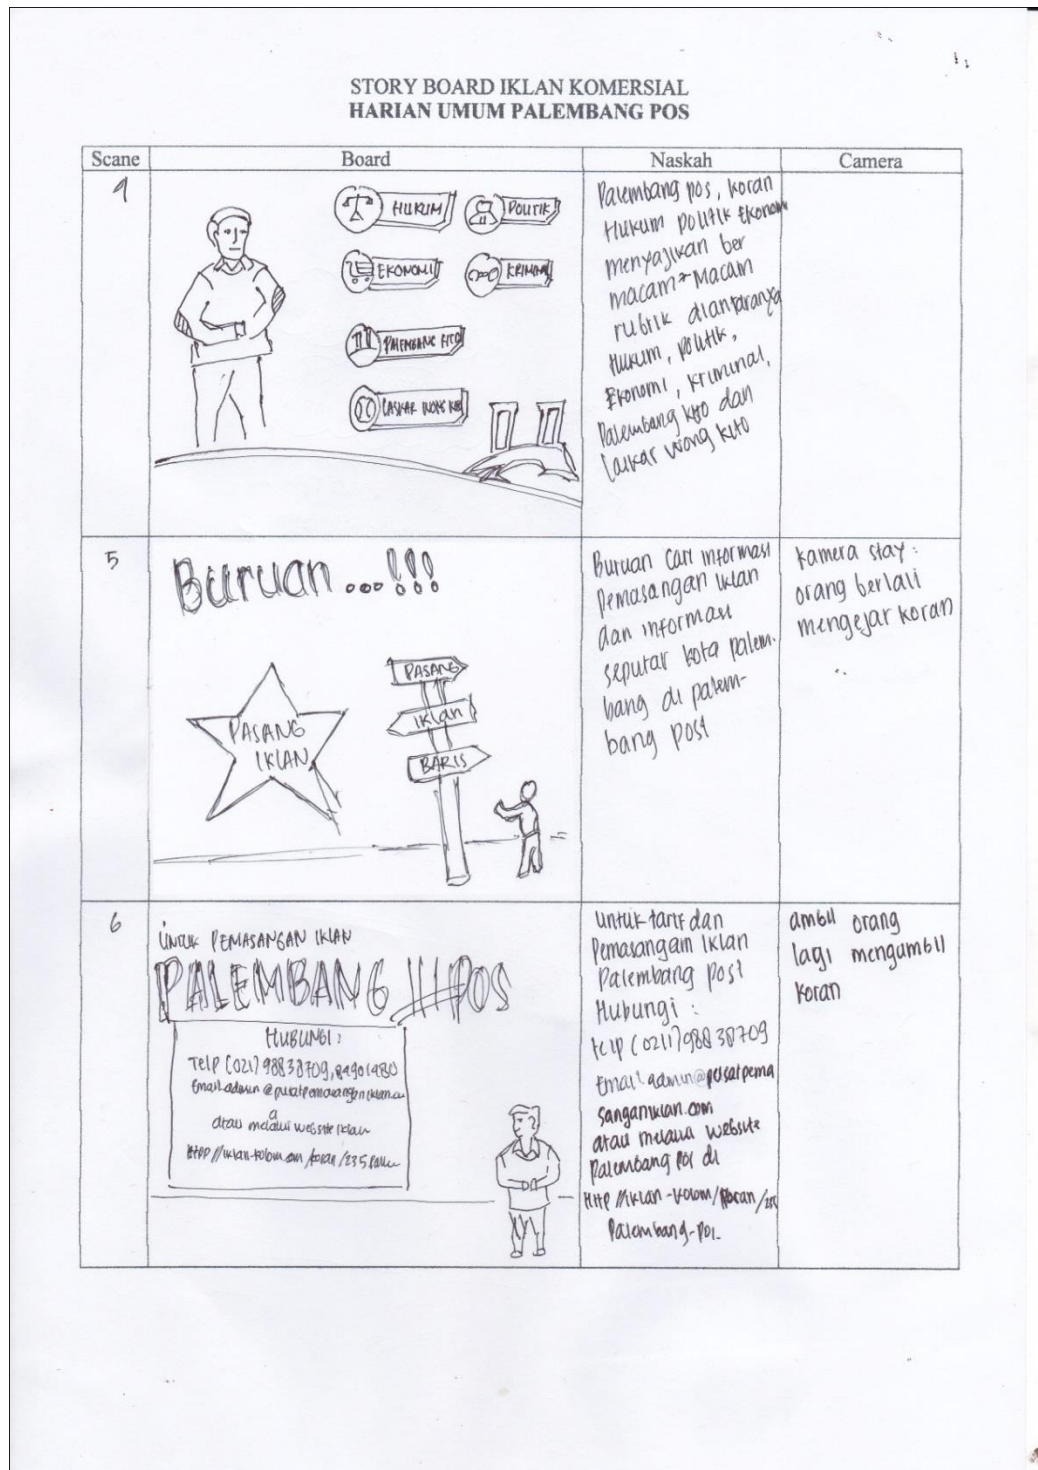 STORY BOARD IKLAN KOMERSIAL
HARIAN UMUM PALEMBANG POS
Scane Board Naskah Camera
4
HUKUM
POLITIK
EKONOMI
KRIMINAL
PALEMBANG KITO
LASKAR WONG KITO
Palembang pos, koran
Hukum Politik Ekonomi
menyajikan ber
macam-Macam
rubrik diantaranya
Hukum, politik,
Ekonomi, kriminal,
Palembang kito dan
laskar wong kito
5
Buruan...!!!
PASANG
IKLAN
PASANG
IKlan
BARIS
Buruan Cari informasi
Pemasangan iklan
dan informasi
seputar kota palem-
bang di palem-
bang post
kamera stay:
orang berlali
mengejar koran
6
UNTUK PEMASANGAN IKLAN
PALEMBANG POS
HUBUNGI:
Telp (021) 98838709, 84901480
Email.admin@pusatpemasanganiklan.co
atau melalui website iklan
untuk tarif dan
Pemasangan iklan
Palembang post
Hubungi:
telp (0211) 98838709
Email: admin@pusatpema
sanganiklan.com
atau melalui website
Palembang pos di
HttP //iklan-kolom/koran/235
Palembang-pos.
ambil orang
lagi mengambil
koran